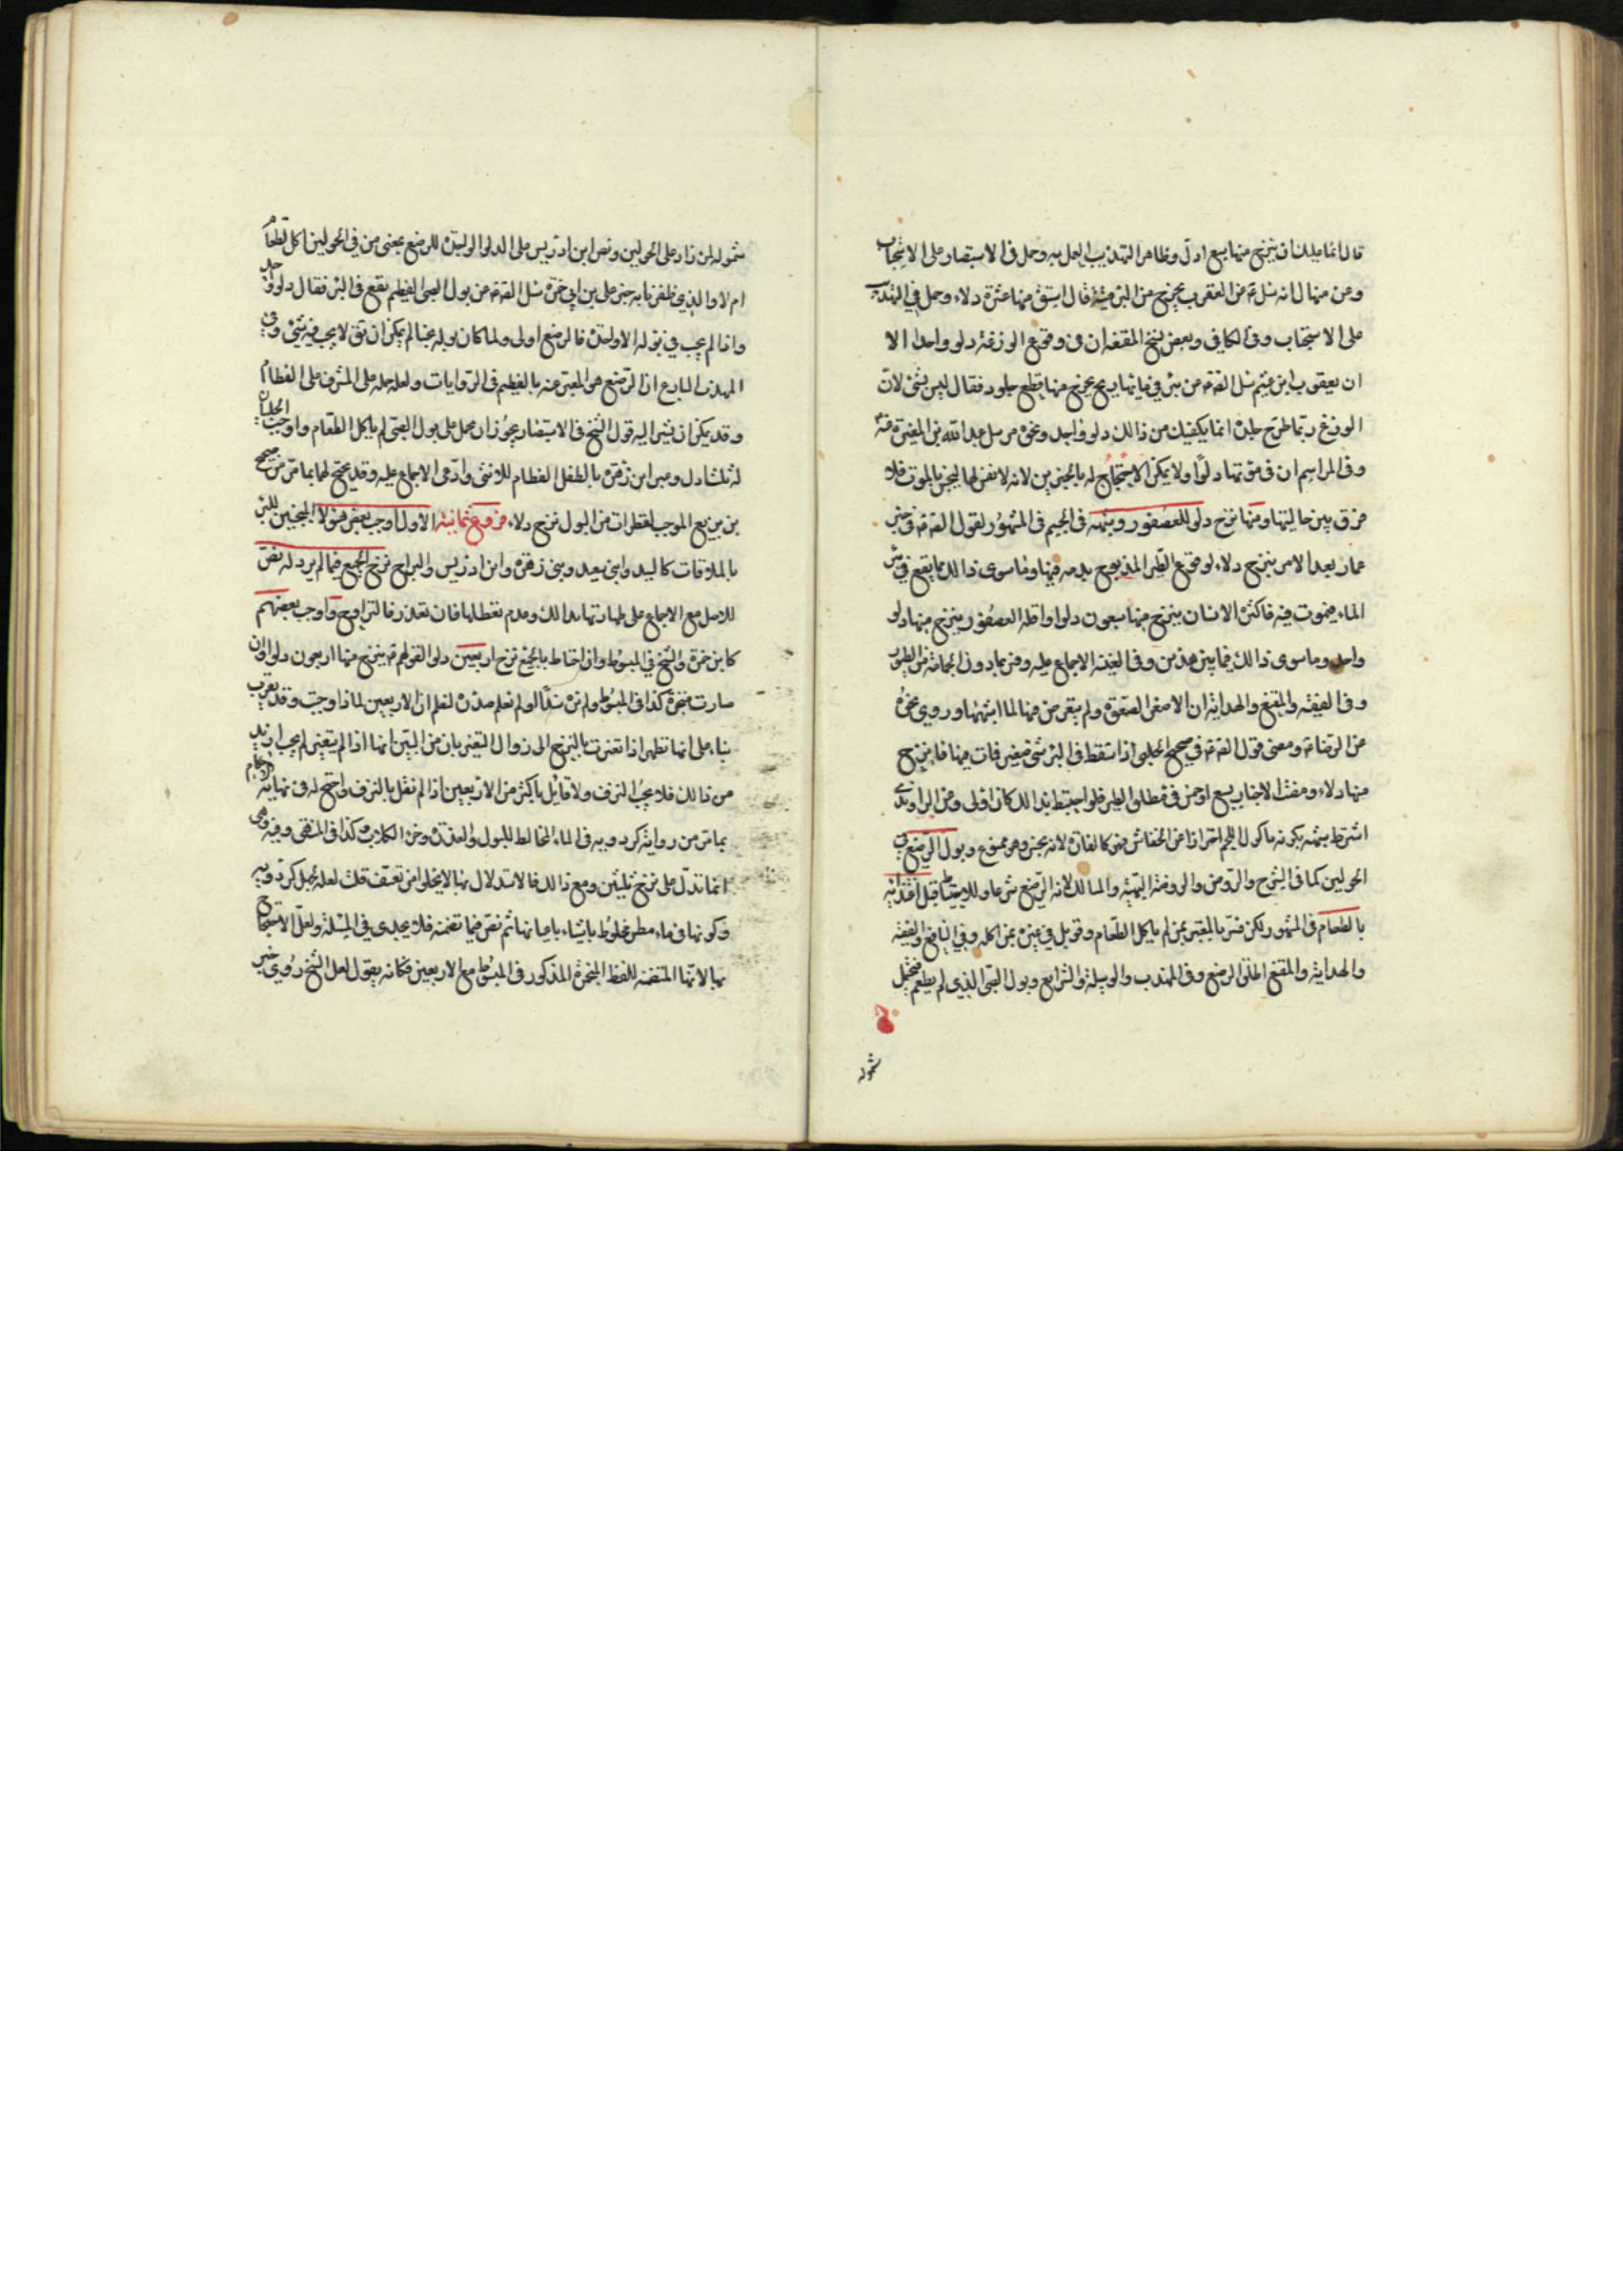 قال انما عليك ان ينزح منها سبع ادل وظاهر التهذيب العمل به وحمل فى الاستبصار على الاستحباب
وعن منهال انه سئله عن العقرب يخرج من البئر ميتة قال استق منها عشرة دلاء وحمل فى التهذيب
على الاستحباب وفى الكافى وبعض نسخ المقنعه ان فى وقوع الوزغة دلو واحدا الا
ان يعقوب ابن عيثم سئل الصادق من بئر فى مائها ريح يخرج منها قطع جلود فقال ليس بشئ لان
الوزغ ربما طرح جلده انما يكفيك من ذالك دلو واحد ونحوه مرسل عبد الله بن المغيرة عنه
وفى المراسم ان فى موتها دلوا ولا يمكن الاحتجاج له بالخبرين لانه لا نفس لها لينجس بالموت فلا
فرق بين حاليتها ومنها نزح دلو للعصفور وشبهه فى الجسم فى المشهور لقول الصادق فى خبر
عمار بعد الامر بنزح دلاء لوقوع الطير المذبوح بدمه فيها وما سوى ذالك مما يقع فى بئر
الماء فيموت فيه فاكثره الانسان ينزح منها سبعون دلوا واقله العصفور ينزح منها دلو
واحد وما سوى ذالك فيما بين هذين وفى الغنية الاجماع عليه وفسر بما دون الحمامة من الطيور
وفى الفقيه والمقنع والهداية ان الاصغر الصعوة ولم يتعرض فيها لما اشبهها وروى نحوه
عن الرضا ومعنى قول الصادق فى صحيح الحلبى اذا سقط فى البئر شئ صغير فمات فيها فانزح
منها دلاء ومضت الاخبار بسبع او خمس فى مطلق الطير فلو احتيط بذالك كان اولى وعن الراوندى
اشتراط شبهه بكونه ماكول اللحم احترازا عن الخفاش فهو كالفارة لانه نجس وهو ممنوع وبول الرضيع فى
الحولين كما فى السرائر والروض والروضة البهية والمسالك لانه الرضيع شرعا وللاستصحاب قبل اغتذائه
بالطعام فى المشهور لكن فسر بالمعتبر بمن لم ياكل الطعام وقوبل فى غيره بمن اكله وفى النافع والفقيه
والهداية والمقنع اطلق الرضيع وفى المهذب والوسيلة والشرايع وبول الصبى الذى لم يطعم فيحتمل
شموله
شموله لمن زاد على الحولين ونص ابن ادريس على الدلو الواحدة للرضيع بمعنى من فى الحولين اكل الطعام
ام لا والذى ظفرنا به خبر على بن ابى حمزه سئل الصادق عن بول الصبى الفطيم تقع فى البئر فقال دلو واحد
واذا لم يجب فى بوله الا واحدة فالرضيع اولى ولما كان بوله نجسا لم يمكن ان يقال لا يجب فيه شئ وفى
المهذب البارع ان الرضيع هو المعبر عنه بالفطيم فى الروايات ولعله حمله على المشرف على الفطام
وقد يمكن ان يشير اليه قول الشيخ فى الاستبصار يجوز ان يحمل على بول الصبى لم ياكل الطعام واوجب الحلبيان
له ثلث ادل وعبر ابن زهره بالطفل الفطام للانثى وادعى الاجماع عليه وقد يحتج لهما بما مر من صحيح
بن بزيع الموجب لقطرات من البول نزح دلاء فروع ثمانية الاول اوجب بعض هؤلاء المنجسين للبئر
بالملاقات كالسيد وابنى سعيد وبنى زهره وابن ادريس والبراج نزح الجميع فيما لم يرد له نص
للاصل مع الاجماع على طهارتها بذالك وعدم تعطلها فان تعذر فالتراوح واوجب بعضهم
كابن حمزة والشيخ فى المبسوط وان احتاط بالجميع نزح اربعين دلوا لقولهم ينزح منها اربعون دلوا وان
صارت مبخرة كذا فى المبسوط ولم نره مسندا ولم نعلم صدره لنعلم ان الاربعين لماذا وجبت وقد يقرب
بناء على انها تطهر اذا تغيرت بالنزح الى زوال التغير بان من البين انها اذا لم يتغير لم يجب ازيد
من ذالك فلا يجب النزف ولا قائل باكثر من الاربعين اذا لم نقل بالنزف واحتج له فى نهاية الاحكام
بما مر من رواية كردويه فى الماء المخالط للبول والعذرة وخرء الكلاب وكذا فى المنتهى وفيه وهى
انما تدل على نزح ثلثين ومع ذالك فالاستدلال بها لا يخلوا من تعسف قلت لعله لجهل كردويه
وكونها فى ماء مطر مخلوط باشياء باعيانها ثم نقص فيما تضمنه فلا يجدى فى المسئلة ولعل الاحتجاج
بها لاتمها المتضمنه للفظ المبخرة المذكور فى المبسوط مع الاربعين فكانه يقول لعل الشيخ روى خبر